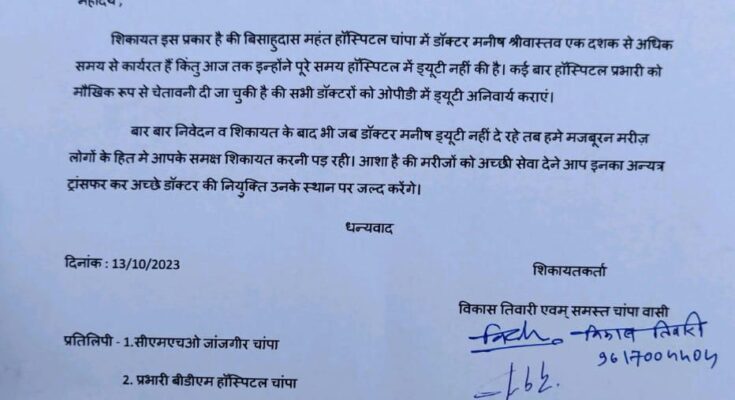 महोदय,
शिकायत इस प्रकार है की बिसाहुदास महंत हॉस्पिटल चांपा में डॉक्टर मनीष श्रीवास्तव एक दशक से अधिक
समय से कार्यरत हैं किंतु आज तक इन्होंने पूरे समय हॉस्पिटल में ड्यूटी नहीं की है। कई बार हॉस्पिटल प्रभारी को
मौखिक रूप से चेतावनी दी जा चुकी है की सभी डॉक्टरों को ओपीडी में ड्यूटी अनिवार्य कराएं।
बार बार निवेदन व शिकायत के बाद भी जब डॉक्टर मनीष ड्यूटी नहीं दे रहे तब हमे मजबूरन मरीज़
लोगों के हित मे आपके समक्ष शिकायत करनी पड़ रही। आशा है की मरीजों को अच्छी सेवा देने आप इनका अन्यत्र
ट्रांसफर कर अच्छे डॉक्टर की नियुक्ति उनके स्थान पर जल्द करेंगे।
धन्यवाद
दिनांक : 13/10/2023
शिकायतकर्ता
विकास तिवारी एवम् समस्त चांपा वासी
विकास तिवारी
प्रतिलिपी - 1.सीएमएचओ जांजगीर चांपा
2. प्रभारी बीडीएम हॉस्पिटल चांपा